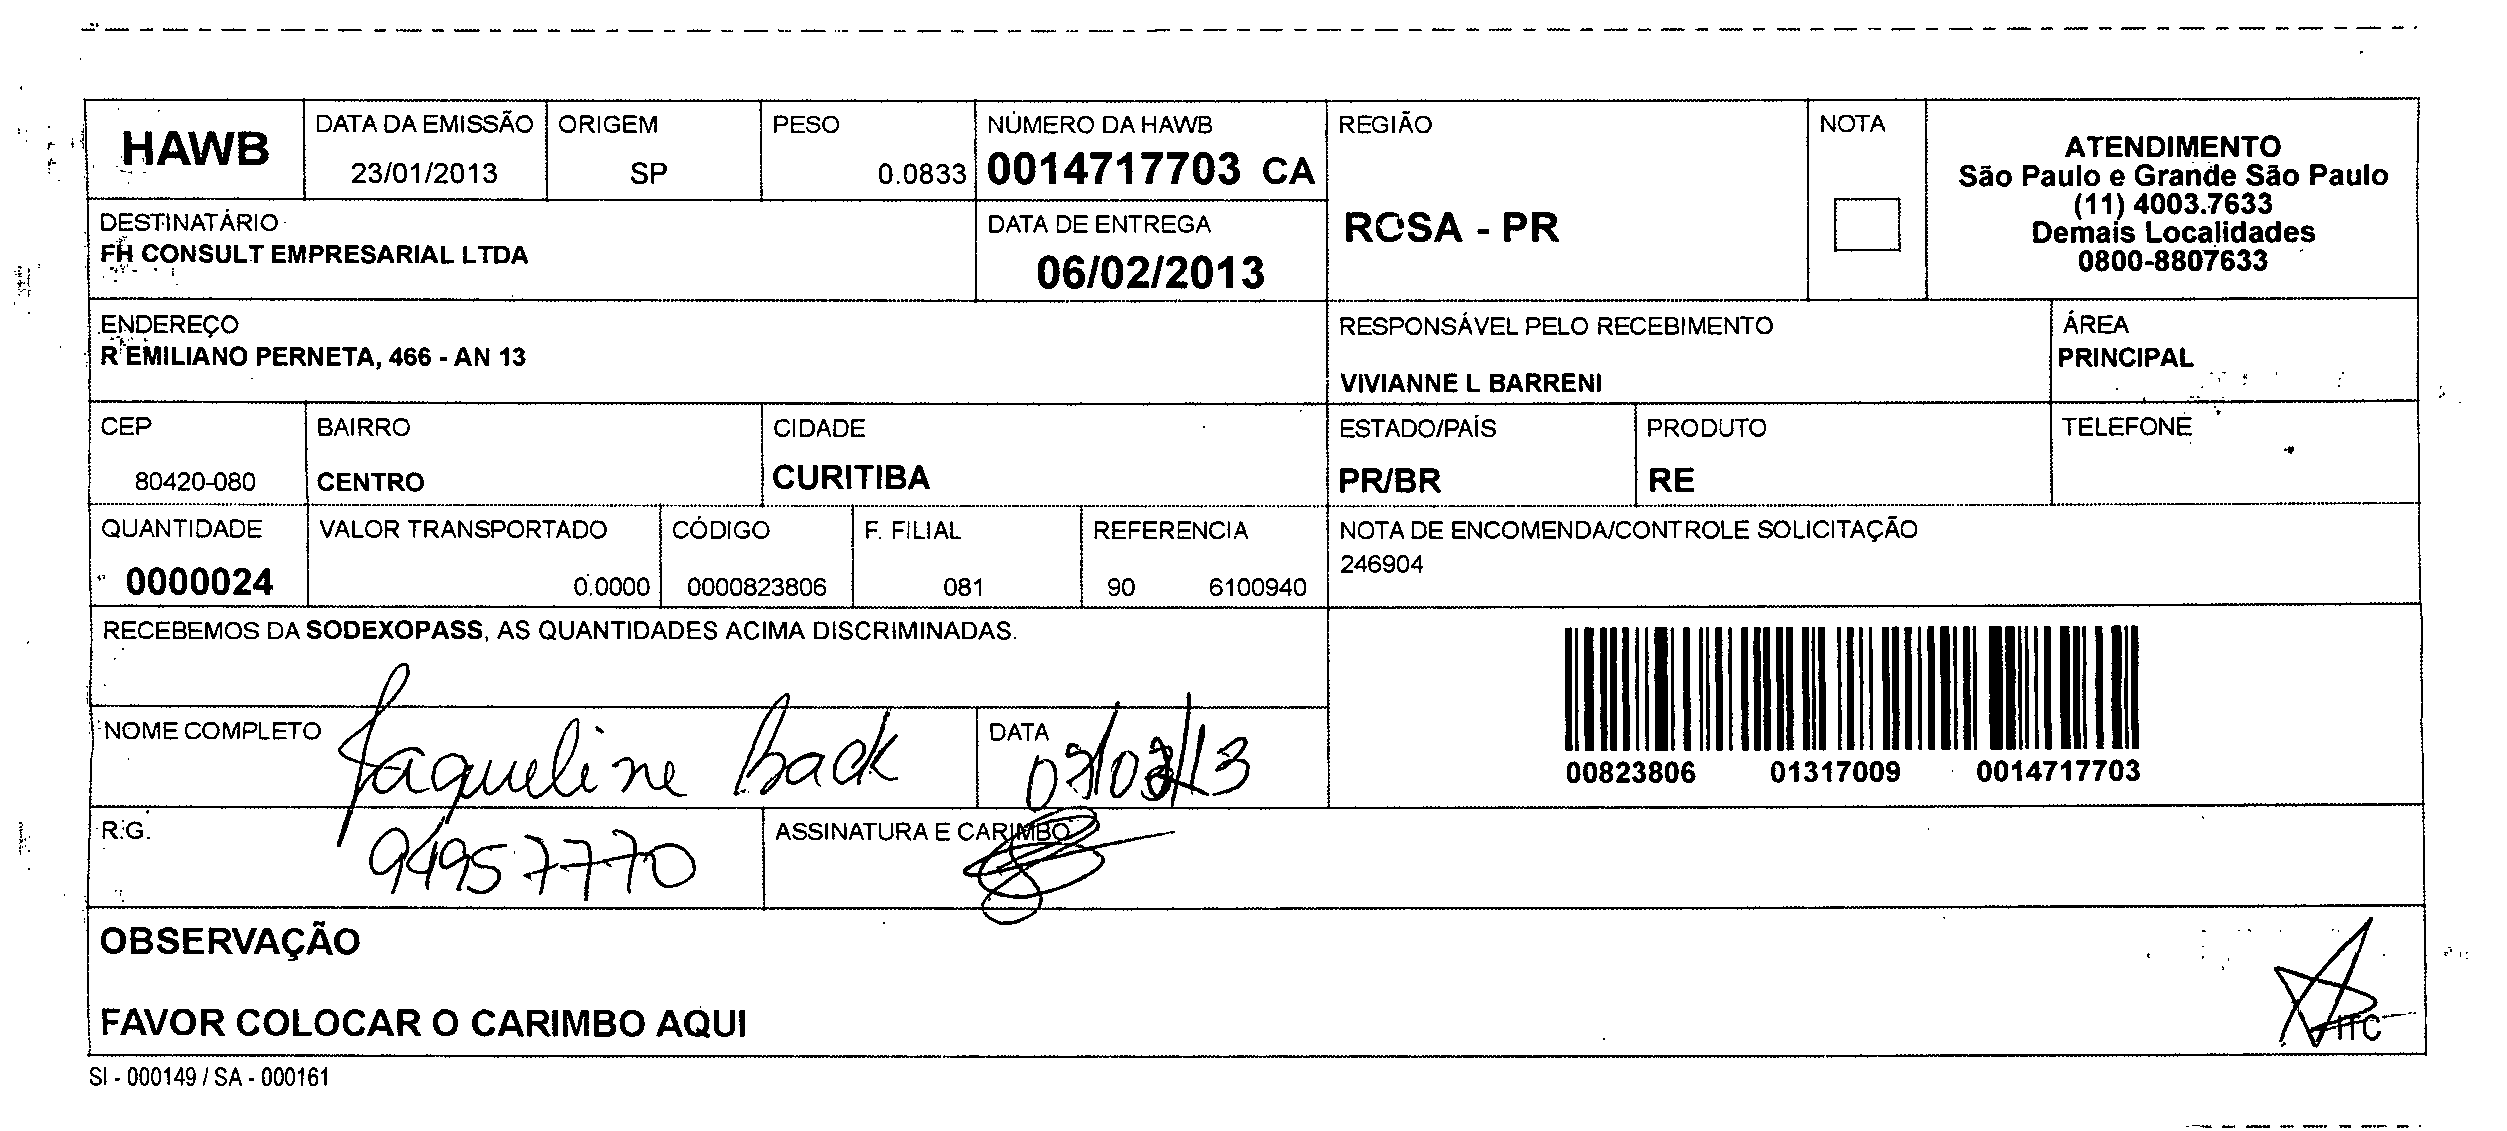 HAWB
DATA DA EMISSÃO
23/01/2013
ORIGEM
SP
PESO
0.0833
NÚMERO DA HAWB
0014717703 CA
REGIÃO
ROSA - PR
NOTA
ATENDIMENTO
São Paulo e Grande São Paulo
(11) 4003.7633
Demais Localidades
0800-8807633
DESTINATÁRIO
FH CONSULT EMPRESARIAL LTDA
DATA DE ENTREGA
06/02/2013
ENDEREÇO
R EMILIANO PERNETA, 466 - AN 13
RESPONSÁVEL PELO RECEBIMENTO
VIVIANNE L BARRENI
ÁREA
PRINCIPAL
CEP
80420-080
BAIRRO
CENTRO
CIDADE
CURITIBA
ESTADO/PAÍS
PR/BR
PRODUTO
RE
TELEFONE
QUANTIDADE
0000024
VALOR TRANSPORTADO
0.0000
CÓDIGO
0000823806
F. FILIAL
081
REFERENCIA
90 6100940
NOTA DE ENCOMENDA/CONTROLE SOLICITAÇÃO
246904
RECEBEMOS DA SODEXOPASS, AS QUANTIDADES ACIMA DISCRIMINADAS.
00823806 01317009 0014717703
NOME COMPLETO
Jaqueline Back
DATA
R.G.
94957770
ASSINATURA E CARIMBO
OBSERVAÇÃO
FAVOR COLOCAR O CARIMBO AQUI
ITC
SI - 000149 / SA - 000161